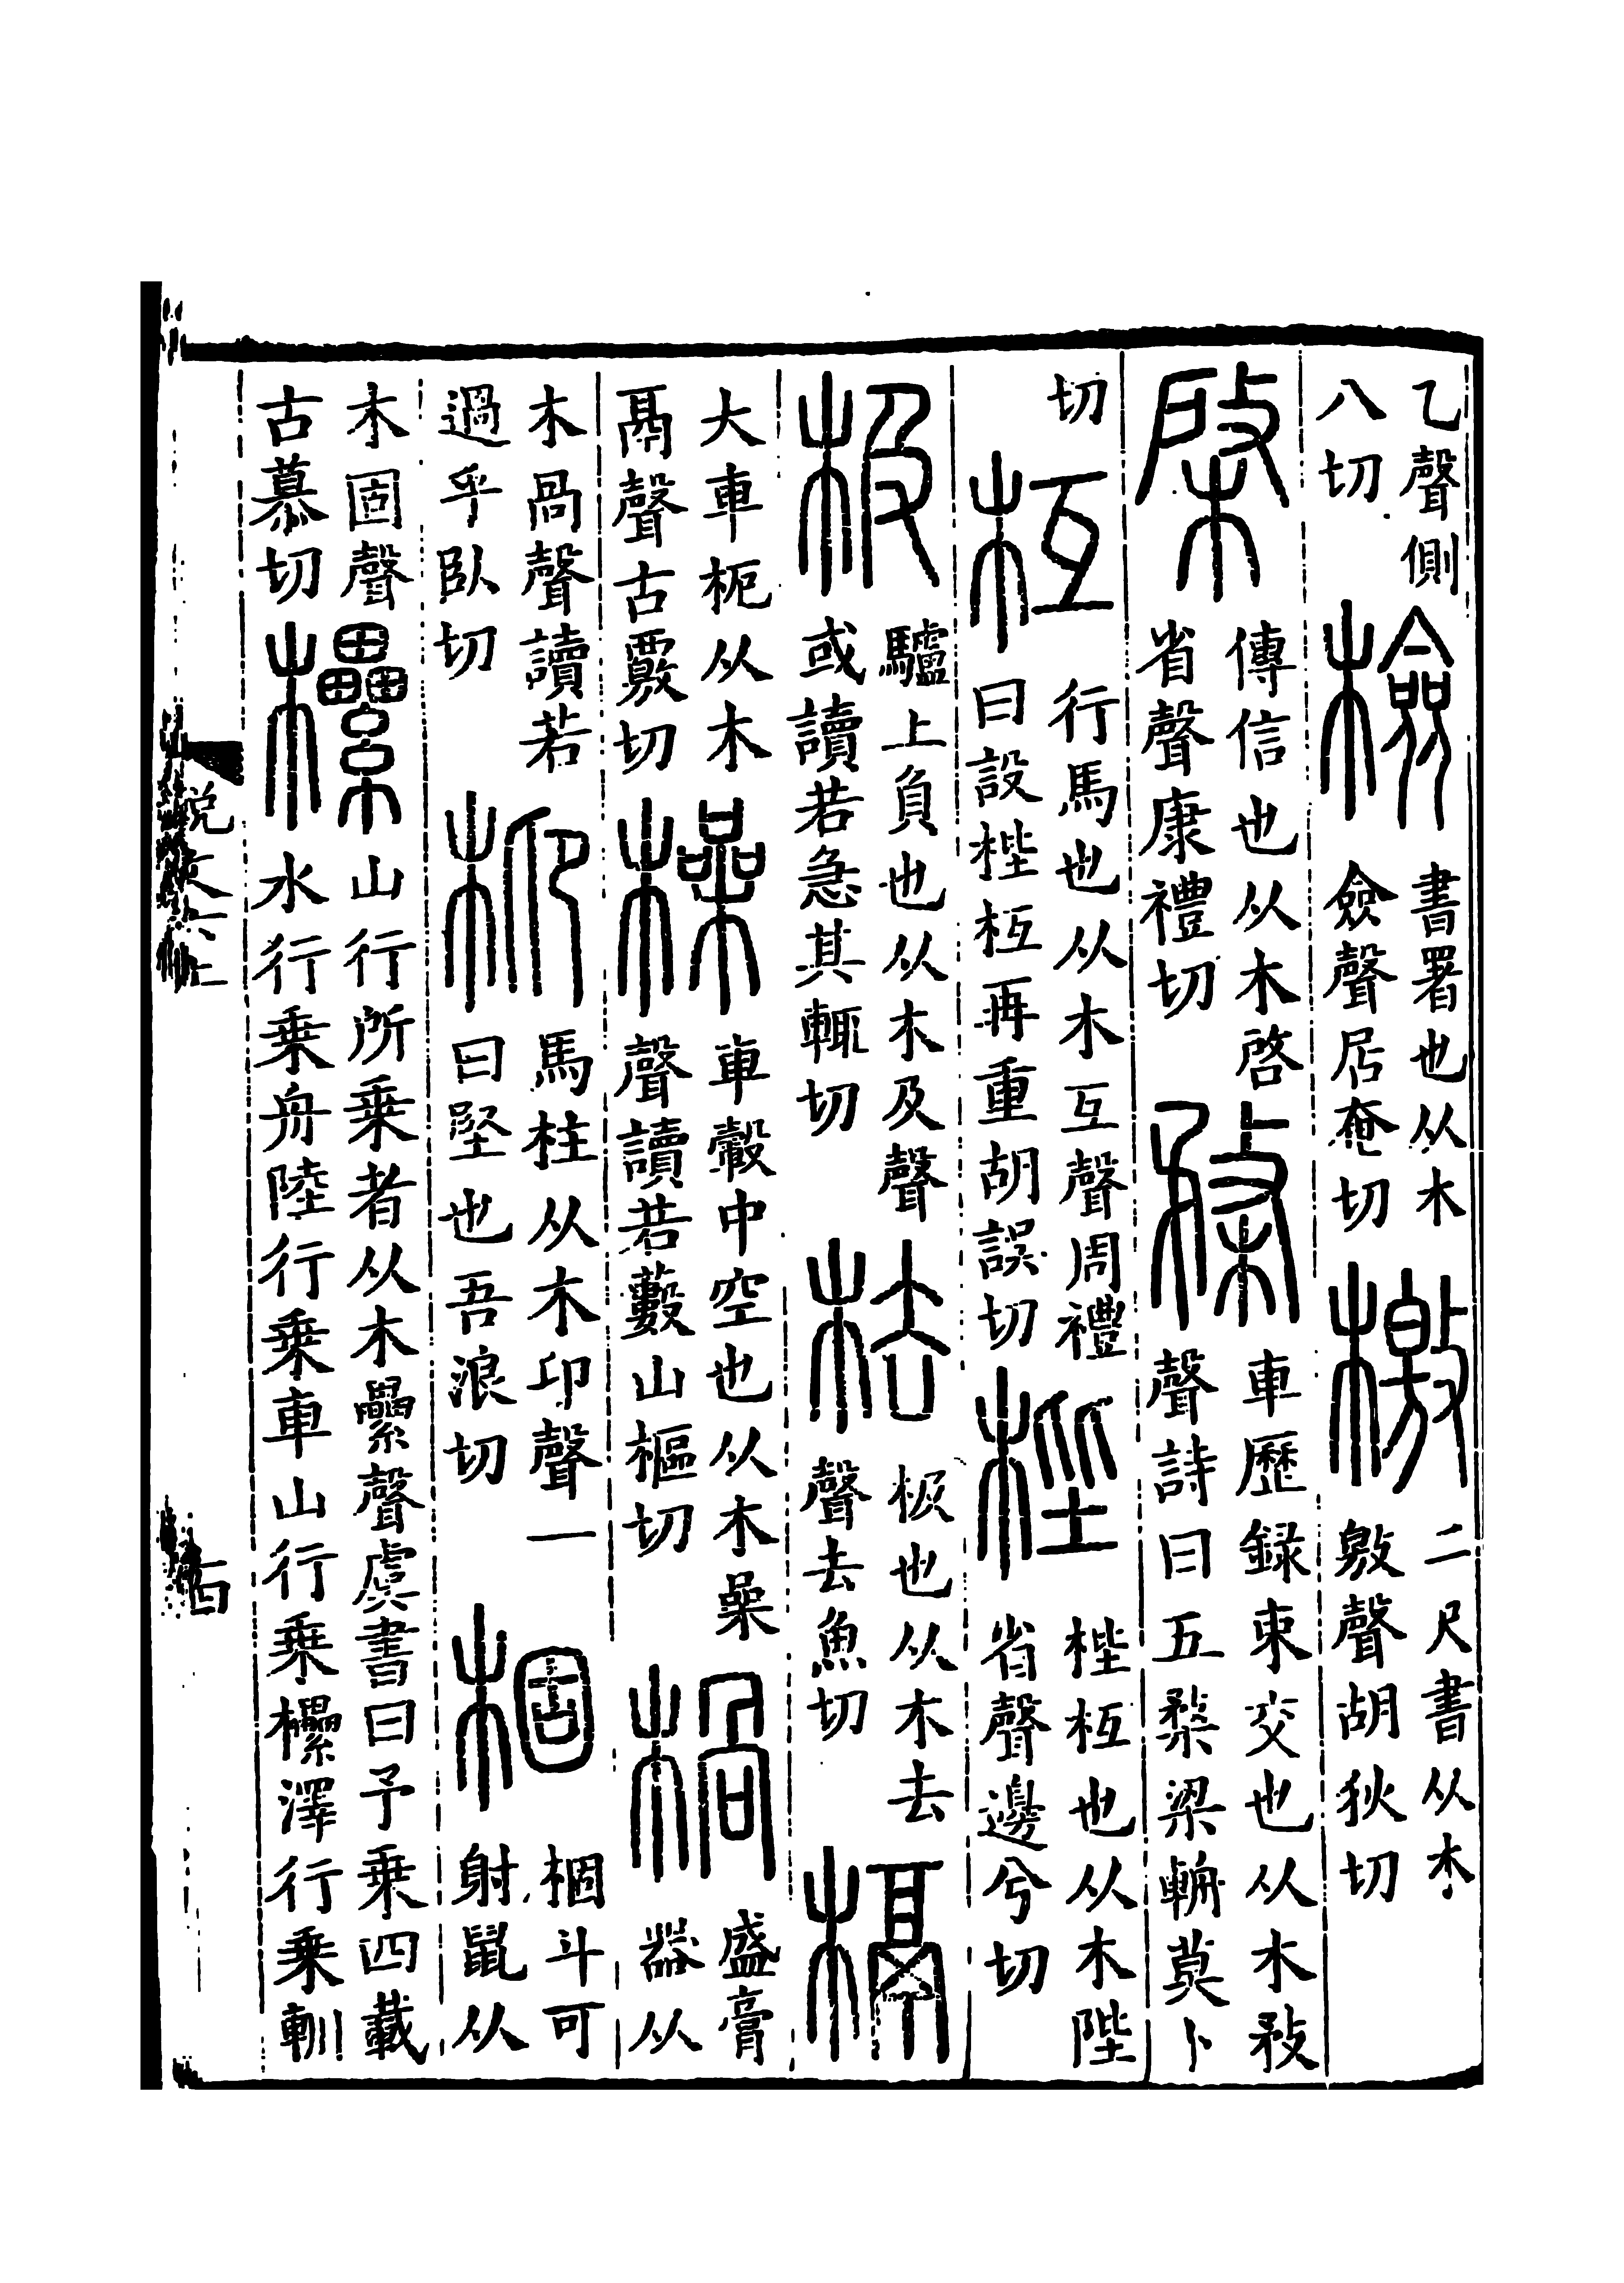 乙聲側八切檢書署也从木僉聲居奄切檄二尺書从木敫聲胡狄切
棨傳信也从木啓省聲康禮切楘車歷録束交也从木敄聲詩曰五楘梁輈莫卜
切枑行馬也从木互聲周禮曰設梐枑再重胡誤切梐梐枑也从木陛省聲邊兮切
极驢上負也从木及聲或讀若急其輒切㭕极也从木去聲去魚切槅
大車枙从木鬲聲古覈切橾車轂中空也从木喿聲讀若藪山樞切楇盛膏器从
木咼聲讀若過乎臥切枊馬柱从木卬聲一曰堅也吾浪切棝棝斗可射鼠从
木固聲古慕切欙山行所乗者从木纍聲虞書曰予乗四載水行乗舟陸行乗車山行乗欙澤行乗䡅
説文六上
四